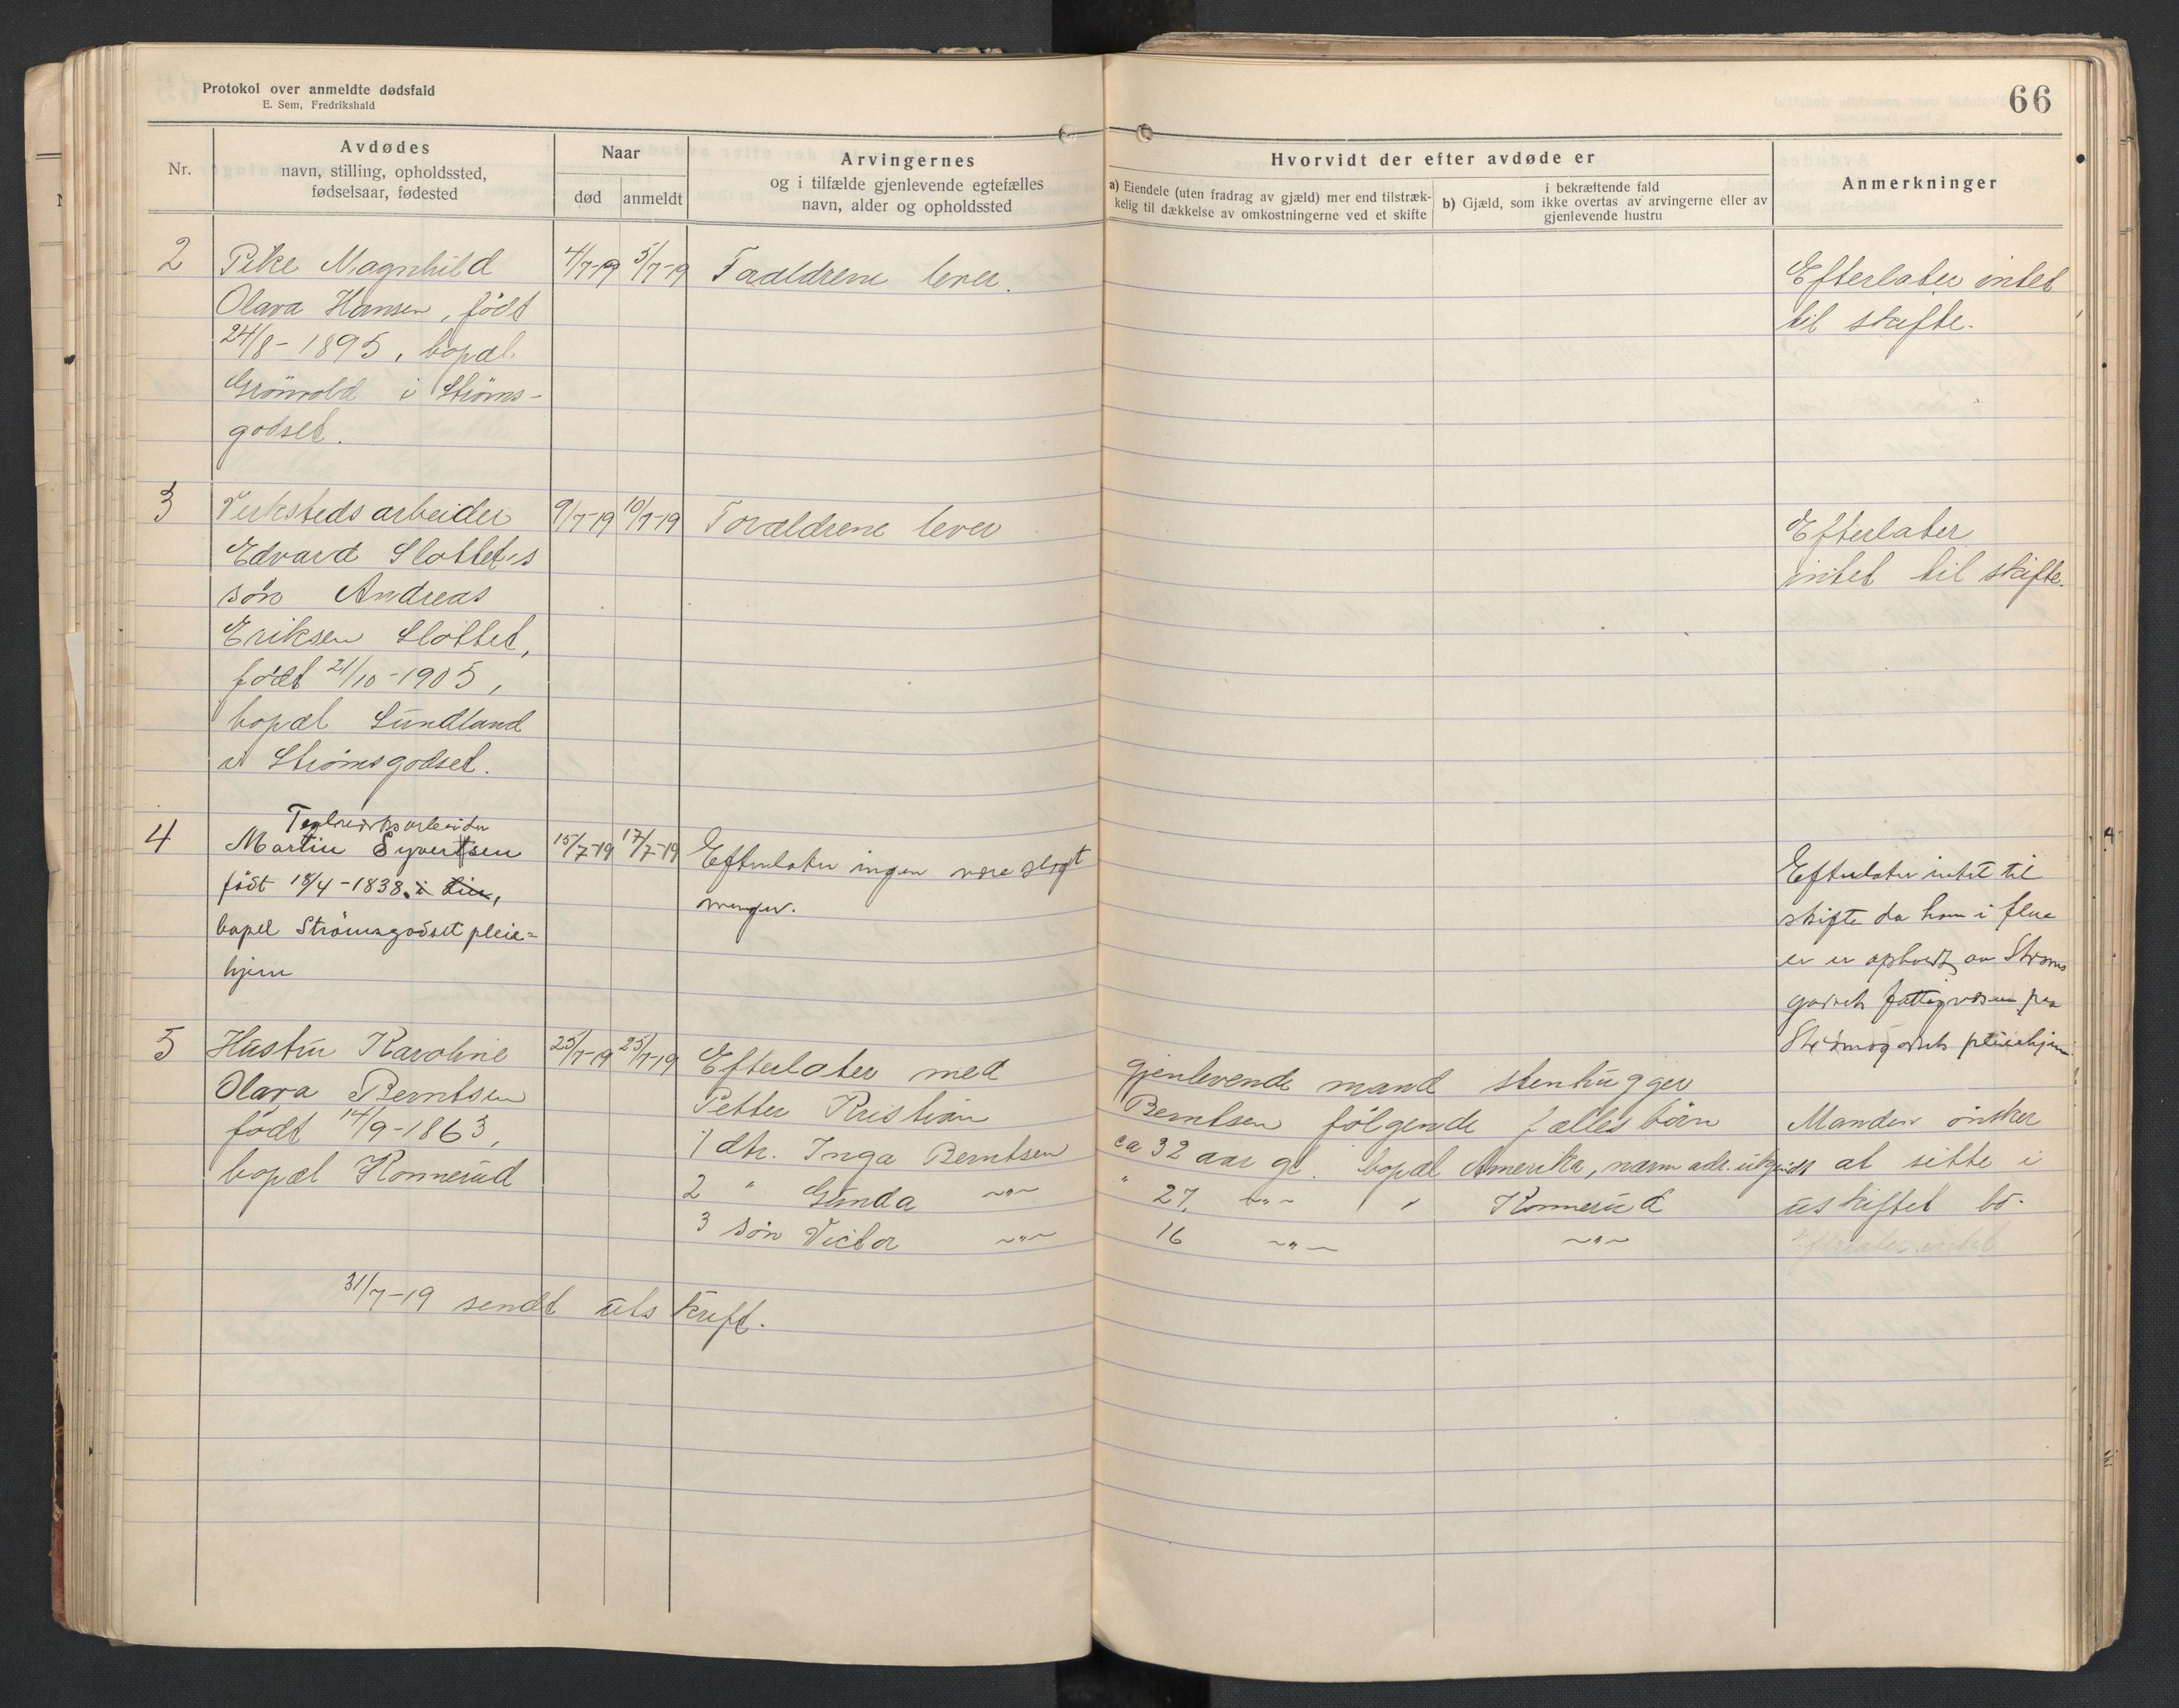 Protokol over anmeldte dødsfald
E. Sem, Fredrikshald
66
Nr.
Avdødes
navn, stilling, opholdssted,
fødselsaar, fødested
Naar
død
anmeldt
Arvingernes
og i tilfælde gjenlevende egtefælles
navn, alder og opholdssted
Hvorvidt der efter avdøde er
a) Eiendele (uten fradrag av gjæld) mer end tilstræk-
kelig til dækkelse av omkostningerne ved et skifte
i bekræftende fald
b) Gjæld, som ikke overtas av arvingerne eller av
gjenlevende hustru
Anmerkninger
2
Pike Magnhild
Olava Hansen, født
24/8-1895, bopæl
Grönvold i Ströms-
godset.
4/7-19
5/7-19
Forældrene lever.
Efterlater intet
til skifte.
3
Verkstedsarbeider
Edvard Slottets
sön Andreas
Eriksen Slottet,
født 21/10-1905,
bopæl Sundland
i Strömsgodset.
9/7-19
10/7-19
Forældrene lever
Efterlater
intet til skifte.
4
Teglverksarbeider
Martin Syvertsen
födt 18/4-1838. i Lier,
bopel Strömsgodset pleie=
hjem
15/7-19
17/7-19
Efterlater ingen nære slegt
ninger.
Efterlater intet til
skifte da han i flere
er Ströms
godsets fattigvæsen paa
Strömsgodsets pleiehjem.
5
Hustru Karoline
Olava Berntsen
födt 14/9-1863,
bopæl Konnerud
25/7-19
25/7-19
Efterlater med gjenlevende mand stenhugger
Petter Kristian Berntsen fölgende fælles börn
1 dtr. Inga Berntsen ca 32 aar gl. bopæl Amerika, nærm adr. ukjendt
2 " Gunda ~"~ " 27. ~"~ " Konnerud
3 sön Victor ~"~ 16 ~"~ ~"~
Manden önsker
at sitte i
uskiftet bo.
Efterlater intet
31/7-19 sendt utskrift.